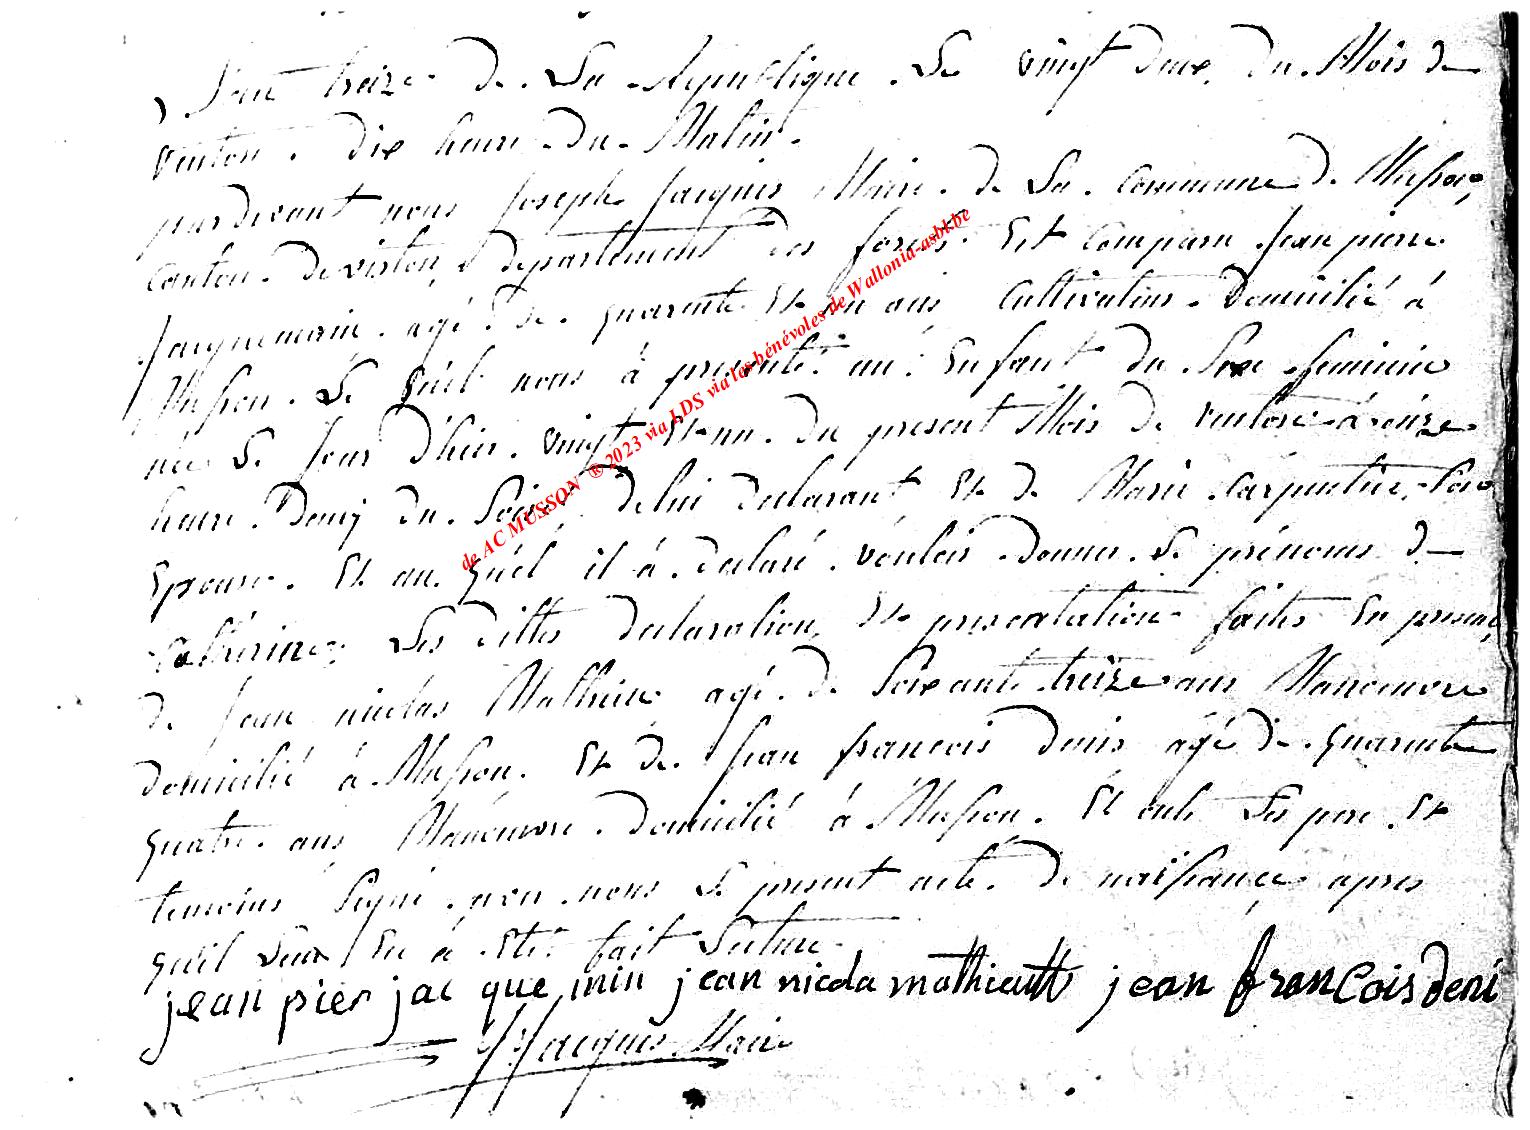 L'an treize de La Republique Le vingt deux du Mois de
ventos dix heure du Matin.
pardevant nous Joseph Jacques Maire de La commune de Musson,
canton de virton, departement des forets Est comparu Jean pierre
Jacquemain agé de quarente Et un ans Cultivateur Domicilié à
Musson. Le quel nous à presenté un Enfant du Sexe feminin
née Le Jour d'hier vingt Et un du present Mois de ventose à onze
heure Demy du Soir, de lui declarant Et de Marie Carpentier, Son
Epouse. Et au quel il à declaré vouloir donner Le prénoms de
Catherine, Les dittes declaration Et presentation faites En presence,
de Jean nicolas Mathieu agé de Soixante treize ans Manoeuvre
domicilié à Musson. Et de Jean francois denis agé de quarente
quatre ans Manoeuvre Domicilié à Musson. Et ont Les pere Et
temoins Signé avec nous Le present acte de naissance apres
qu'il Leur En à Eté fait Lecture
jean pier jac que min jean nicola mathieu jean francois deni
J: Jacques Maire
de AC MUSSON ® 2023 via LDS via les bénévoles de Wallonia-asbl.be